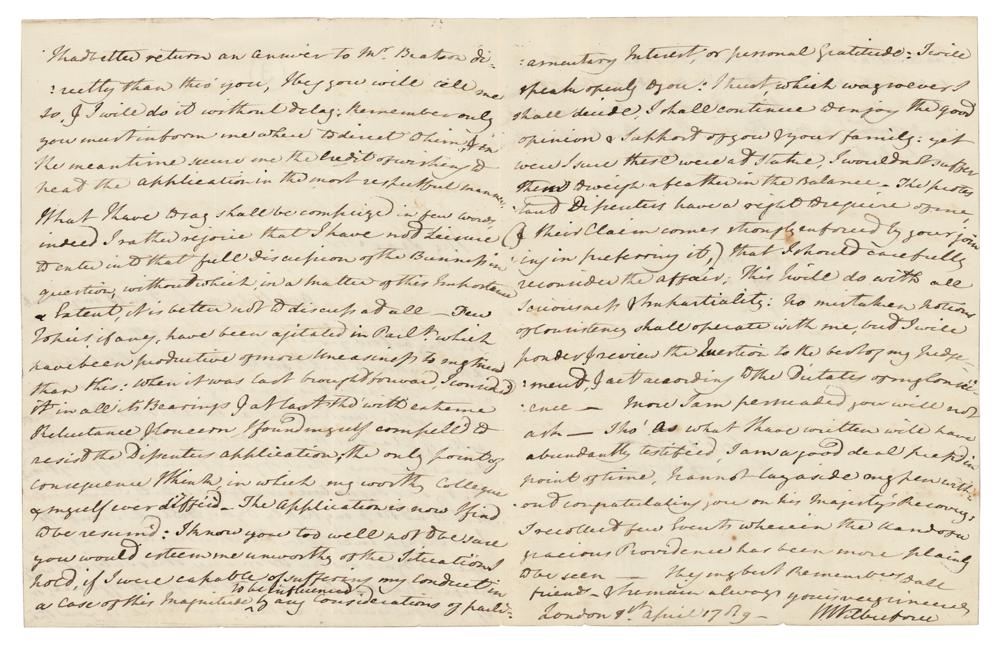 I had better return an answer to Mr. Beatson di-
:rectly than thro' you, I beg you will tell me
so, & I will do it without delay: Remember only
you must inform me where to direct to him, & in
the meantime secure me the Credit of wishing to
treat the application in the most respectful manner
What I have to say shall be comprized in few words,
indeed I rather rejoice that I have not Leisure
to enter into that full discussion of the Business in
question, without which, in a matter of this Importance
& Extent, it is better not to discuss at all — Few
Topics, if any, have been agitated in Parlt. which
have been productive of more Uneasiness to my mind
than this: when it was last brought forward, I consider'd
it in all its Bearings & at last tho' with extreme
Reluctance & Concern I found myself compell'd to
resist the Dissenters application; the only point of
consequence I think, in which my worthy Colleague
& myself ever differ'd — The application is now I find
to be resum'd: I know you too well not to be sure
you would esteem me unworthy of the Situation I
hold, if I were capable of suffering my conduct in
a case of this Magnitude to be influenced by any considerations of parli-
:amentary Interest, or personal Gratitude: I will
speak openly to you: I trust which way soever I
shall decide, I shall continue to enjoy the good
opinion & Support of you & your family: yet
were I sure these were at stake, I would not suffer
them to weigh a feather in the Balance — The protest
:ant Dissenters have a right to require of me,
(& their Claim comes strongly enforced by your join
ing in preferring it,) that I should carefully
reconsider the affair. This I will do with all
Seriousness & Impartiality: No mistaken Notions
of Consistency shall operate with me, but I will
ponder & review the Question to the best of my Judge-
:ment, & act according to the Dictates of my Consci-
:ence — More I am persuaded you will not
ask — Tho' as what I have written will have
abundantly testified, I am a good deal press'd in
point of time, I cannot lay aside my pen with-
out congratulating you on his Majesty's Recovery;
I recollect few Events wherein the hand of a
gracious Providence has been more plainly
to be seen — My best Remembces to all
friends — & I remain always yours very sincerely
London 8th April 1789 — W Wilberforce